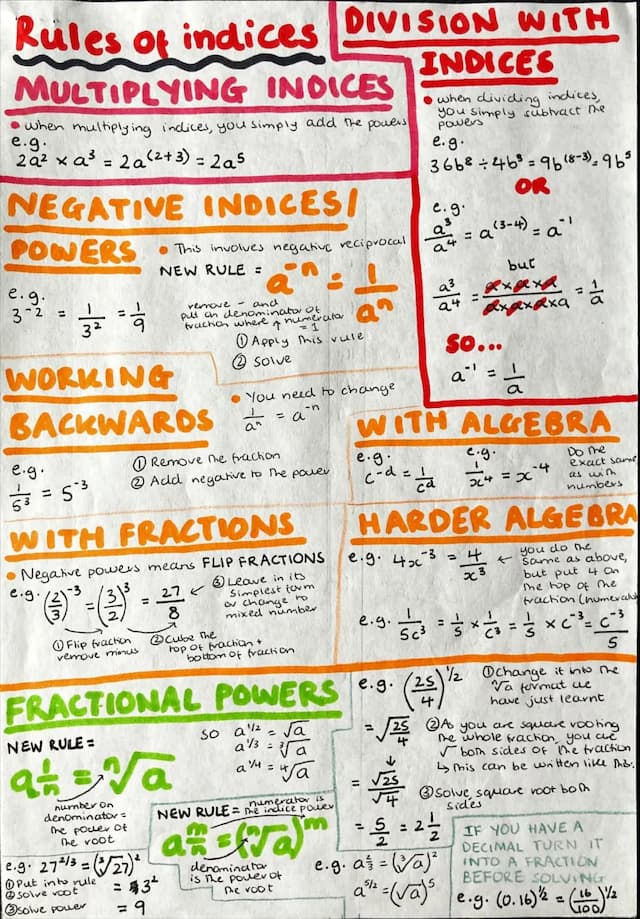 Rules of indices
MULTIPLYING INDICES
• when multiplying indices, you simply add the powers
e.g.
2a² × a³ = 2a⁽²⁺³⁾ = 2a⁵
DIVISION WITH
INDICES
• when dividing indices,
you simply subtract the
powers
e.g.
36b⁸ ÷ 4b³ = 9b⁽⁸⁻³⁾ = 9b⁵
OR
e.g.
a³/a⁴ = a⁽³⁻⁴⁾ = a⁻¹
but
a³/a⁴ = a×a×a/a×a×a×a = 1/a
SO...
a⁻¹ = 1/a
NEGATIVE INDICES/
POWERS
• This involves negative reciprocal
NEW RULE = a⁻ⁿ = 1/aⁿ
e.g.
3⁻² = 1/3² = 1/9
remove - and
put on denominator of
fraction where numerator
= 1
① Apply this rule
② Solve
WORKING
BACKWARDS
• You need to change
1/aⁿ = a⁻ⁿ
e.g.
1/5³ = 5⁻³
① Remove the fraction
② Add negative to the power
WITH ALGEBRA
e.g.
c⁻ᵈ = 1/cᵈ
e.g.
1/x⁴ = x⁻⁴
Do the
exact same
as with
numbers
WITH FRACTIONS
• Negative powers means FLIP FRACTIONS
e.g. (2/3)⁻³ = (3/2)³ = 27/8
③ Leave in its
simplest form
or change to
mixed number
① Flip fraction
remove minus
② Cube the
top of fraction +
bottom of fraction
HARDER ALGEBRA
e.g. 4x⁻³ = 4/x³
← you do the
same as above,
but put 4 on
the top of the
fraction (numerator
e.g. 1/5c³ = 1/5 × 1/c³ = 1/5 × c⁻³ = c⁻³/5
FRACTIONAL POWERS
NEW RULE =
a^1/n = ⁿ√a
number on
denominator =
the power of
the root
so a^1/2 = √a
a^1/3 = ³√a
a^1/4 = ⁴√a
NEW RULE = numerator is
the indice power
a^m/n = (ⁿ√a)ᵐ
denominator
is the power of
the root
e.g. 27^2/3 = (³√27)²
① Put into rule
② Solve root = 3²
③ Solve power = 9
e.g. (25/4)^1/2
= √25/4
= √25/√4
= 5/2 = 2 1/2
① Change it into the
√a format we
have just learnt
② As you are square rooting
the whole fraction, you are
√ both sides of the fraction
↳ this can be written like this.
③ Solve, square root both
sides
e.g. a^2/3 = (³√a)²
a^5/2 = (√a)⁵
IF YOU HAVE A
DECIMAL TURN IT
INTO A FRACTION
BEFORE SOLVING
e.g. (0.16)^1/2 = (16/100)^1/2